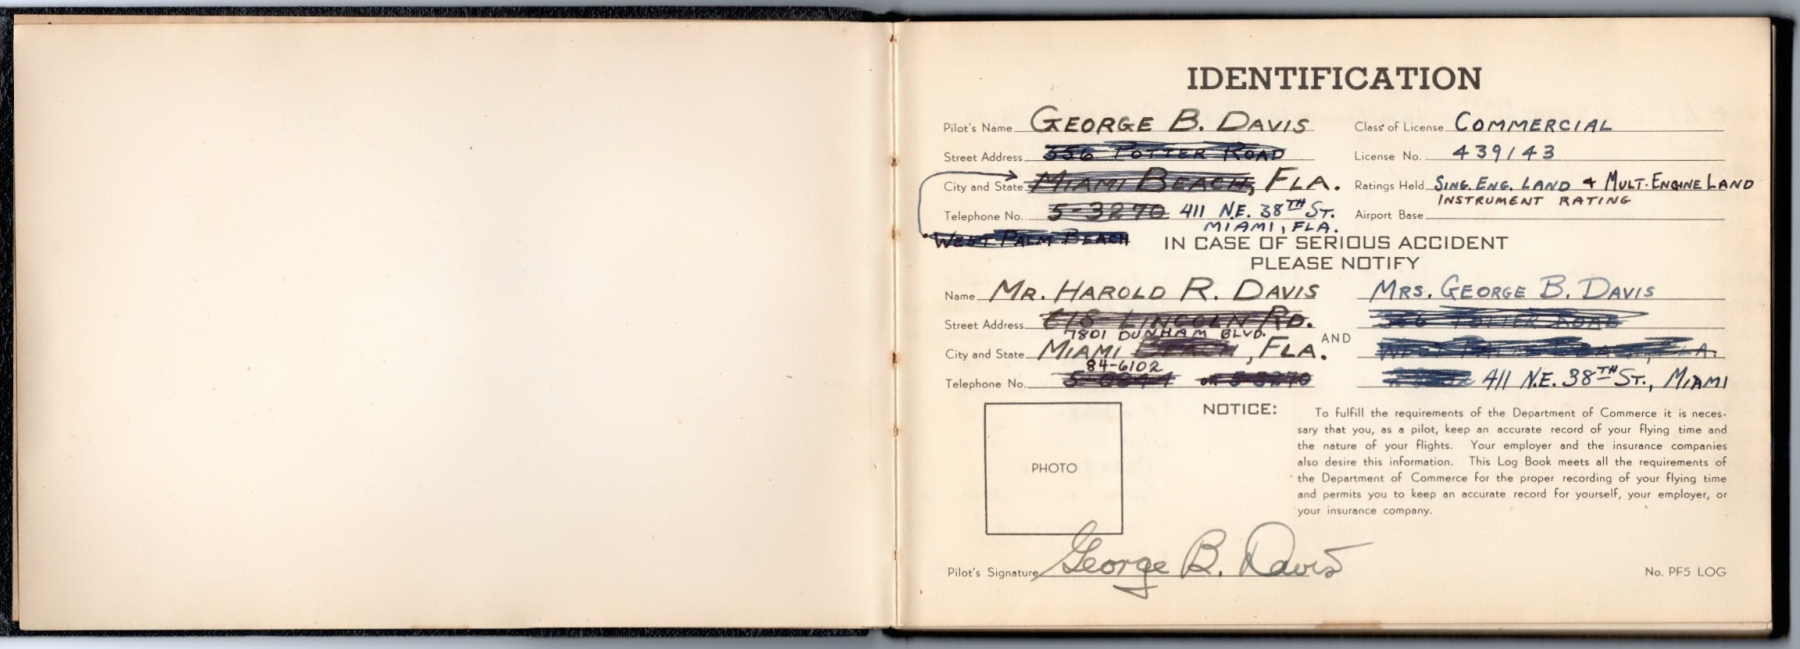 IDENTIFICATION
Pilot's Name GEORGE B. DAVIS Class of License COMMERCIAL
Street Address 556 POTTER ROAD License No. 439143
City and State MIAMI BEACH, FLA. Ratings Held SING. ENG. LAND & MULT-ENGINE LAND
INSTRUMENT RATING
Telephone No. 5-3270 411 N.E. 38TH ST. Airport Base
MIAMI, FLA.
WEST PALM BEACH
IN CASE OF SERIOUS ACCIDENT
PLEASE NOTIFY
Name MR. HAROLD R. DAVIS MRS. GEORGE B. DAVIS
Street Address 618 LINCOLN RD.
7801 DUNHAM BLVD. AND
City and State MIAMI BEACH, FLA.
84-6102
Telephone No. 411 N.E. 38TH ST., MIAMI
PHOTO
NOTICE: To fulfill the requirements of the Department of Commerce it is neces-
sary that you, as a pilot, keep an accurate record of your flying time and
the nature of your flights. Your employer and the insurance companies
also desire this information. This Log Book meets all the requirements of
the Department of Commerce for the proper recording of your flying time
and permits you to keep an accurate record for yourself, your employer, or
your insurance company.
Pilot's Signature George B. Davis
No. PF5 LOG